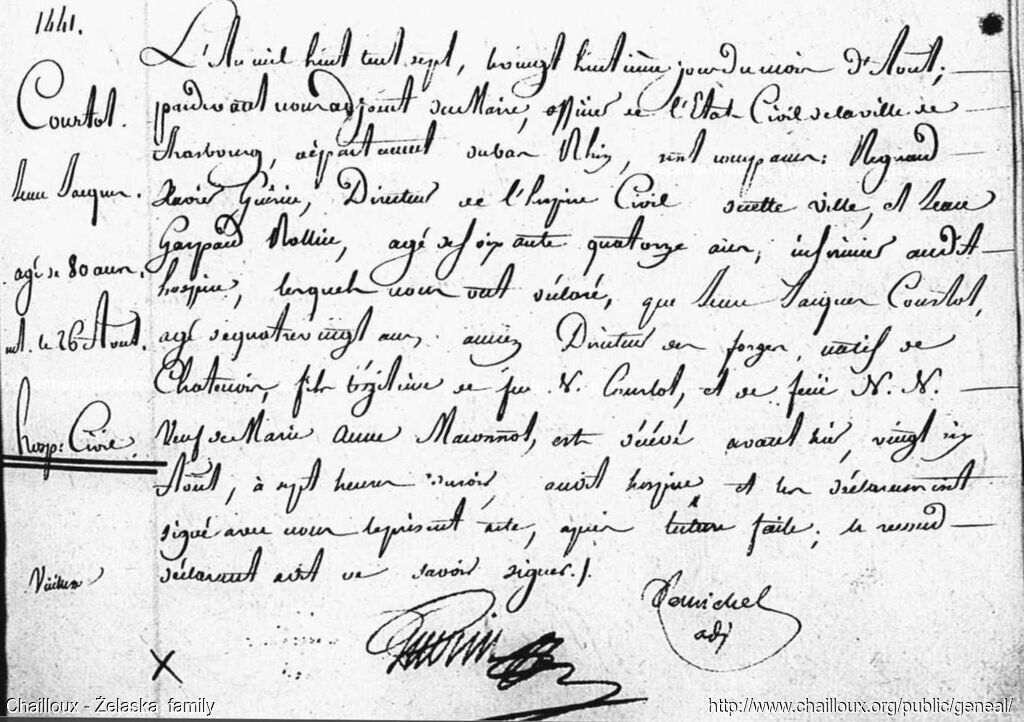 1441.
Courtot.
Jean Jacques.
agé de 80 ans.
mt. le 26 Aout.
hosp: Civil.
L'An mil huit cent sept, vingt huitième jour du mois d'Aout;
pardevant nous adjoint du Maire, officier de l'Etat Civil de la ville de
Strasbourg, département du bas Rhin, sont comparus: Regnard
Xavier Guérin, Directeur de l'hospice Civil de cette ville, et Jean
Gaspard Rollin, agé de soixante quatorze ans, infirmier audit
hospice, lesquels nous ont déclaré, que Jean Jacques Courtot,
agé de quatre vingt ans, ancien Directeur des forges, natif de
Chatenois, fils légitime de feu N. Courtot, et de feüe N. N.
Veuf de Marie Anne Maconnot, est décédé avant hier, vingt six
Aout, à sept heures du soir, audit hospice et les déclarans ont
signé avec nous le présent acte, après lecture faite; le second
déclarant a dit ne savoir signer./.
Guerin
Demichel
adj
Chailloux - Żelaska family
http://www.chailloux.org/public/geneal/